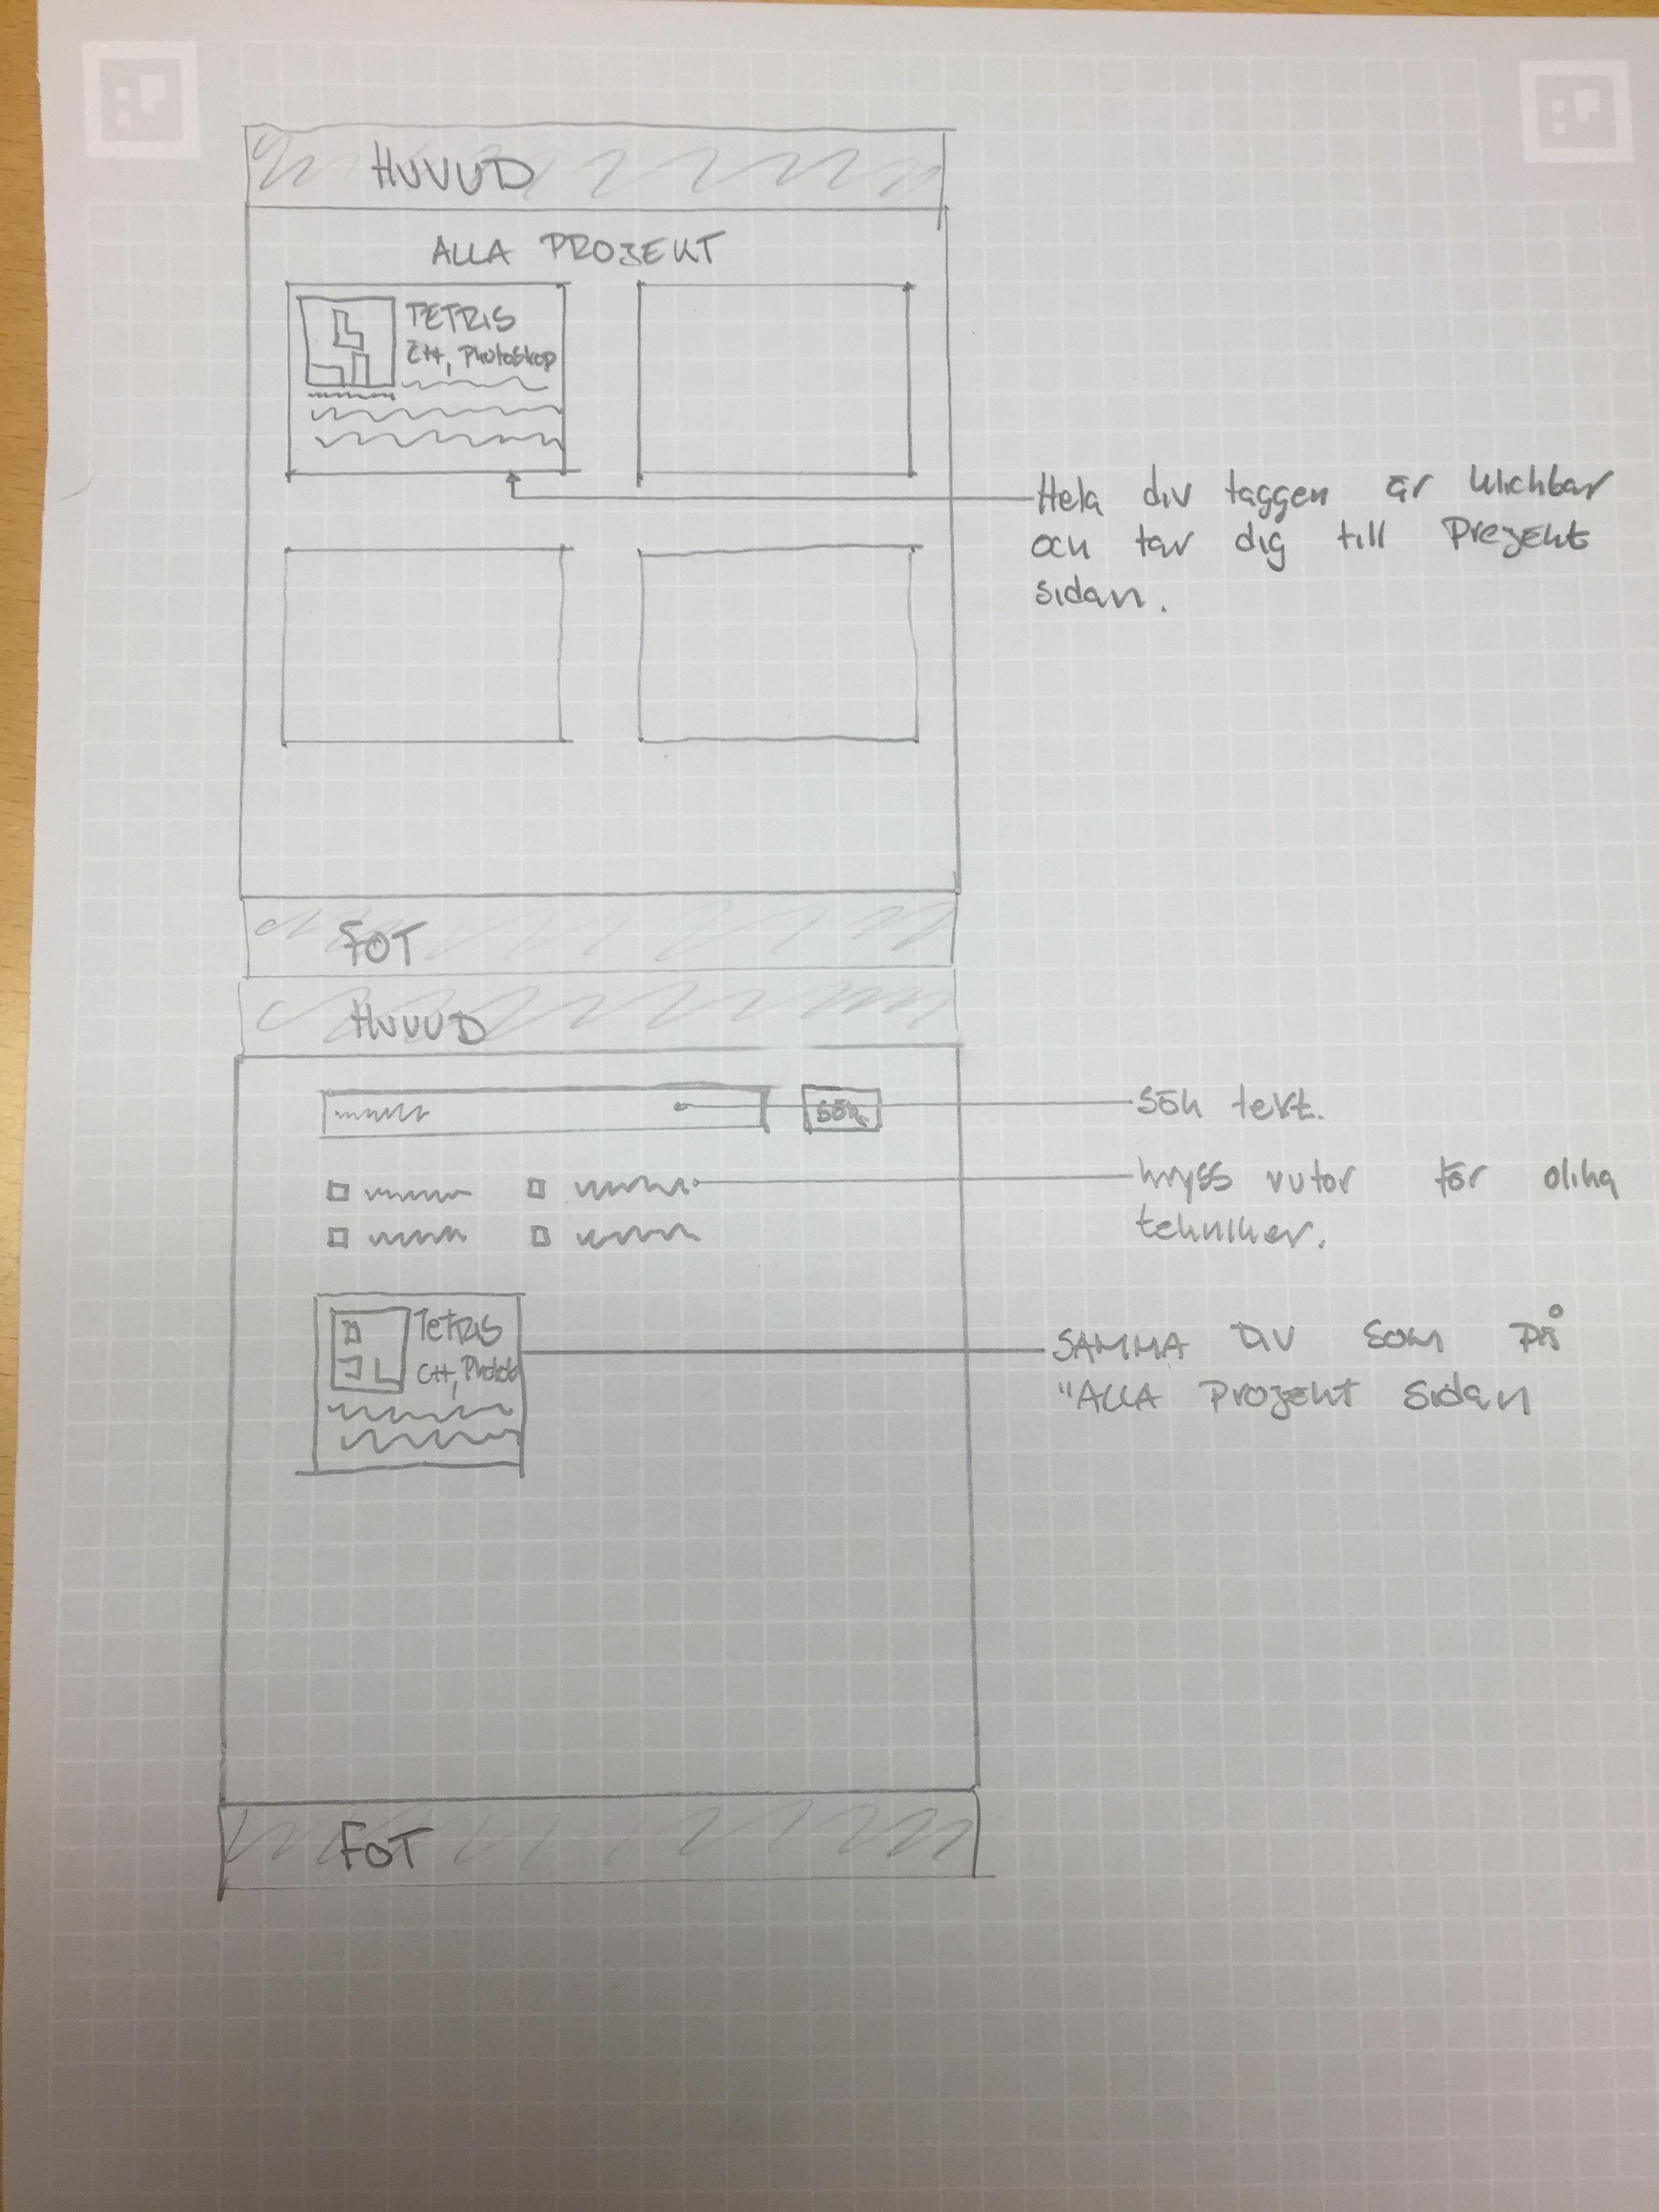 HUVUD
ALLA PROJEKT
TETRIS
C++, Photoshop
Hela div taggen är klickbar
och tar dig till Projekt
sidan.
FOT
HUVUD
SÖK
Sök text.
kryss rutor för olika
tekniker.
TETRIS
C++, Photosh
SAMMA DIV SOM PÅ
"ALLA Projekt sidan
FOT